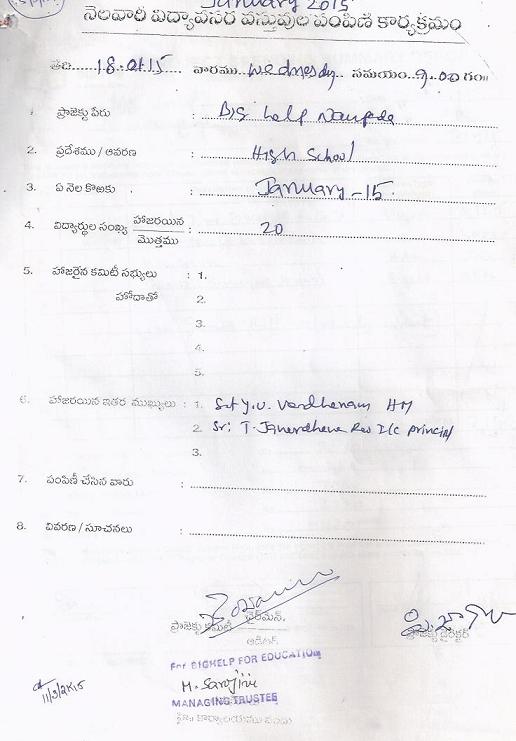 January 2015
నెలవారీ విద్యావసర వస్తువుల పంపిణి కార్యక్రమం
తేది 18.01.15 వారము Wednesdy సమయం 9.00 గం॥
1. ప్రాజెక్టు పేరు : Big help Naupada
2. ప్రదేశము / ఆవరణ : High School
3. ఏ నెల కొఱకు : January - 15.
4. విద్యార్థుల సంఖ్య హాజరయిన / మొత్తము : 20
5. హాజరైన కమిటీ సభ్యులు : 1.
హోదాతో 2.
3.
4.
5.
6. హాజరయిన ఇతర ముఖ్యులు : 1. Smt Y.U. Vardhanam HM
2. Sri T. Janardhana Rao I/c Principal
3.
7. పంపిణీ చేసిన వారు :
8. వివరణ / సూచనలు :
ప్రాజెక్టు కమిటీ ఛైర్మన్.
ప్రాజెక్టు డైరెక్టర్
ఆడిటర్
For BIGHELP FOR EDUCATION
M. Sarojini
MANAGING TRUSTEE
11/3/2K15